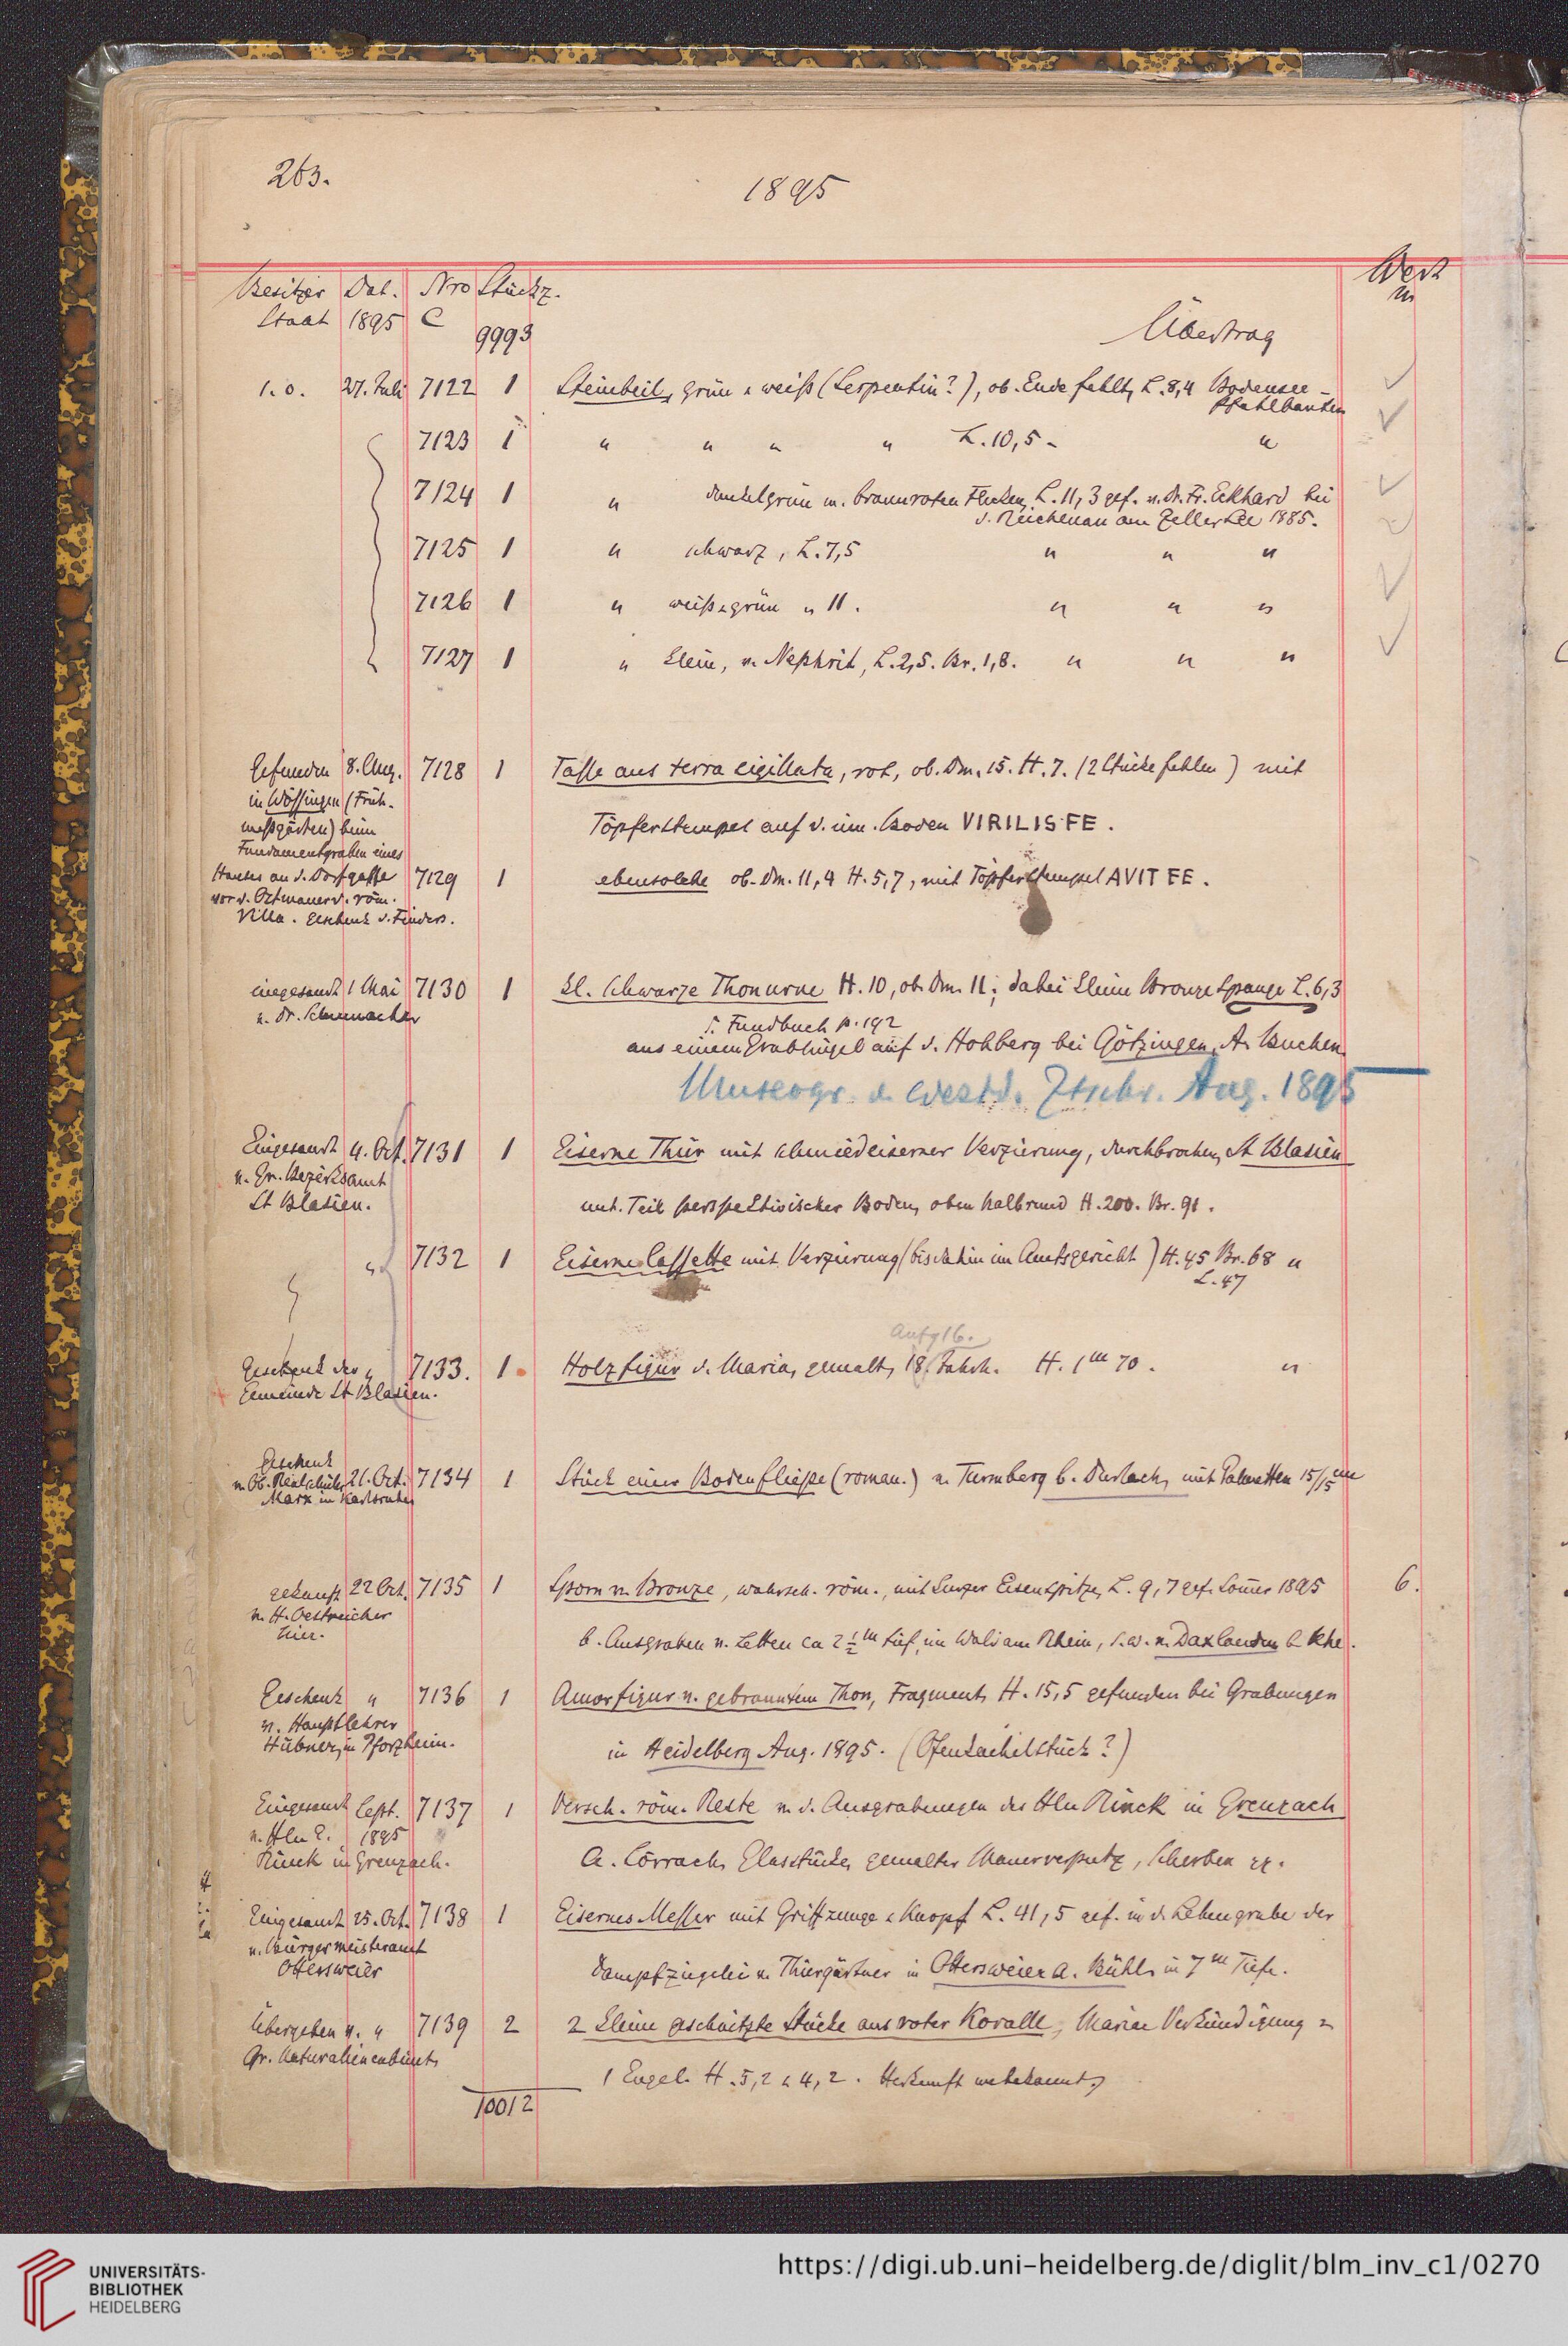 263.
1895
Besitzer Dat. Nro Stückz. Wert
Staat 1895 C 9993 Übertrag M
s. o. 27. Juli 7122 1 Steinbeil, grün u weiß (Serpentin?), ob. Ende fehlt, L. 8,4 Bodensee-
Pfahlbauten
7123 1 " " " " L. 10,5 - "
7124 1 " dunkelgrün m. braunroten Flecken, L. 11,3 gef. v. Dr. Fr. Eckhard bei
d. Reichenau am Zellersee 1885.
7125 1 " schwarz, L. 7,5 " " "
7126 1 " weiß u grün " 11. " " "
7127 1 " klein, v. Nephrit, L. 2,5. Br. 1,8. " " "
Gefunden 8. Aug. 7128 1 Tasse aus terra sigillata, rot, ob. Dm. 15. H. 7. (2 Stücke fehlen) mit
in Wössingen (Früh-
meßgärten) beim Töpferstempel auf d. inn. Boden VIRILIS FE.
Fundamentgraben eines
Hauses an d. Dorfgasse 7129 1 ebensolche ob. Dm. 11,4 H. 5,7, mit Töpferstempel AVIT FE.
vor d. Ortmauer d. röm.
Villa. Geschenk d. Finders.
eingesandt 1 Mai 7130 1 kl. schwarze Thonurne H. 10, ob. Dm. 11; dabei kleine Bronzespange L. 6,3
v. Dr. Schumacher
s. Fundbuch p. 192
aus einem Grabhügel auf d. Hohberg bei Götzingen, A. Buchen
Museogr. d. Westd. Ztschr. Aug. 1895
Eingesandt 4. Oct. 7131 1 Eiserne Thür mit schmiedeiserner Verzierung, durchbrochen, St Blasien
v. Gr. Bezirksamt
St Blasien. unt. Teil perspektivischer Boden, oben halbrund H. 200. Br. 91.
" 7132 1 Eiserne Cassette mit Verzierung (bis dahin im Amtsgericht) H. 45 Br. 68 "
L. 47
Anfg 16.
Geschenk der " 7133. 1 Holzfigur d. Maria, gemalt, 18. Jahrh. H. 1m 70. "
Gemeinde St Blasien.
Geschenk
v. Ob. Realschüler 21. Oct. 7134 1 Stück einer Bodenfließe (roman.) v. Turmberg b. Durlach, mit Palmetten 15/15 cm
Marx in Karlsruhe
gekauft 22 Oct. 7135 1 Sporn v. Bronze, wahrsch. röm., mit kurzer Eisenspitze, L. 9,7 gef. Somer 1895 6.
v. H. Oestreicher
hier. b. Ausgraben v. Letten ca 2 1/2 m tief, im Wald am Rhein, s. w. v. Daxlanden b. Khe.
Geschenk " 7136 1 Amorfigur v. gebranntem Thon, Fragment, H. 15,5 gefunden bei Grabungen
v. Hauptlehrer
Hübner, in Pforzheim. in Heidelberg Aug. 1895. (Ofenkachelstück?)
Eingesandt Sept. 7137 1 Versch. röm. Reste v. d. Ausgrabungen des Hln Rinck in Grenzach
v. Hln E. 1895
Rinck in Grenzach. A. Lörrach, Glasstücke, gemalter Mauerverputz, Scherben etc.
Eingesandt 25. Oct. 7138 1 Eisernes Messer mit Griffzunge u Knopf L. 41,5 gef. in d. Lehmgrube der
v. Bürgermeisteramt
Ottersweier Dampfziegelei v. Thiergärtner in Ottersweier A. Bühl, in 7 m Tiefe.
Übergeben v. " 7139 2 2 kleine geschnitzte Stücke aus roter Koralle, Mariae Verkündigung u
Gr. Naturaliencabinet,
1 Engel. H. 5,2 u 4,2. Herkunft unbekannt.
10012
UNIVERSITÄTS-
BIBLIOTHEK
HEIDELBERG
https://digi.ub.uni-heidelberg.de/diglit/blm_inv_c1/0270